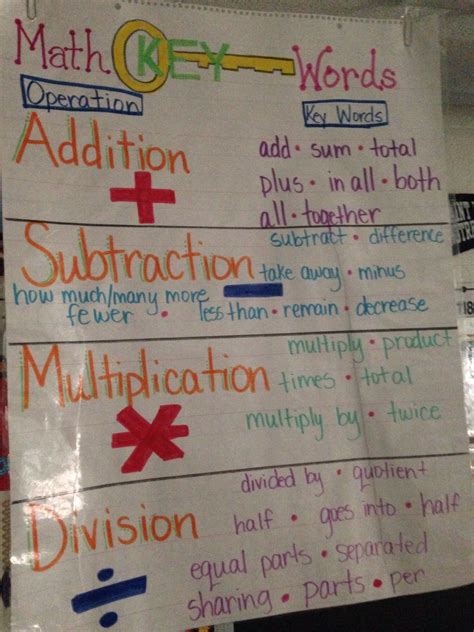 Math KEY Words
Operation
Key Words
Addition
+
add • sum • total
plus • in all • both
all • together
Subtraction
−
subtract • difference
take away • minus
how much/many more
fewer • less than • remain • decrease
Multiplication
*
multiply • product
times • total
multiply by • twice
Division
÷
divided by • quotient
half • goes into • half
equal parts • separated
sharing • parts • per